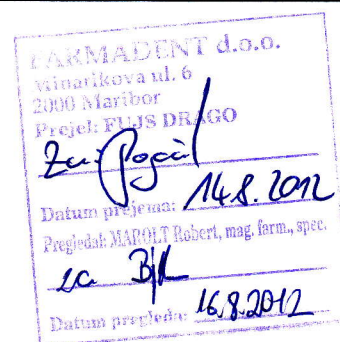 FARMADENT d.o.o.
Minařikova ul. 6
2000 Maribor
Prejel: FUJS DRAGO
Datum prejema: 14.8.2012
Pregledal: MAROLT Robert, mag. farm., spec.
za
Datum pregleda: 16.8.2012